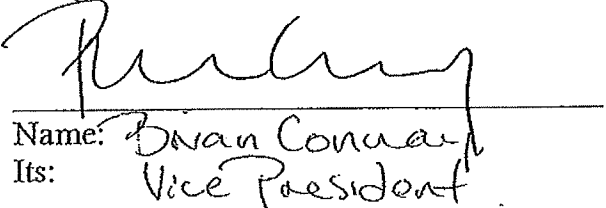 Name: Brian Conway
Its: Vice President